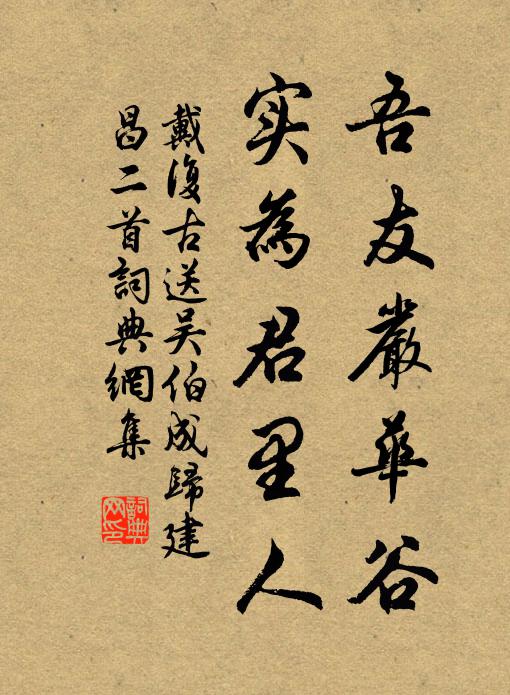 吾友嚴華谷
实為君里人
戴復古送吴伯成歸建
昌二首詞典網集
詞典
网印